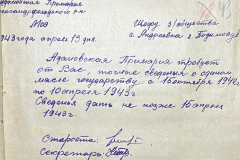 Адамовская Примария
№ 109
1943 года апреля 13 дня.
Шефу з/общества
с. Андреевка г.
Адамовская Примария требует
от Вас, полные сведения о сданом
масле государству, с 16 октября 1942 г.
по 10 апреля 1943 г.
Сведения дать не позже 16 апреля
1943 г.
Староста
Секретарь